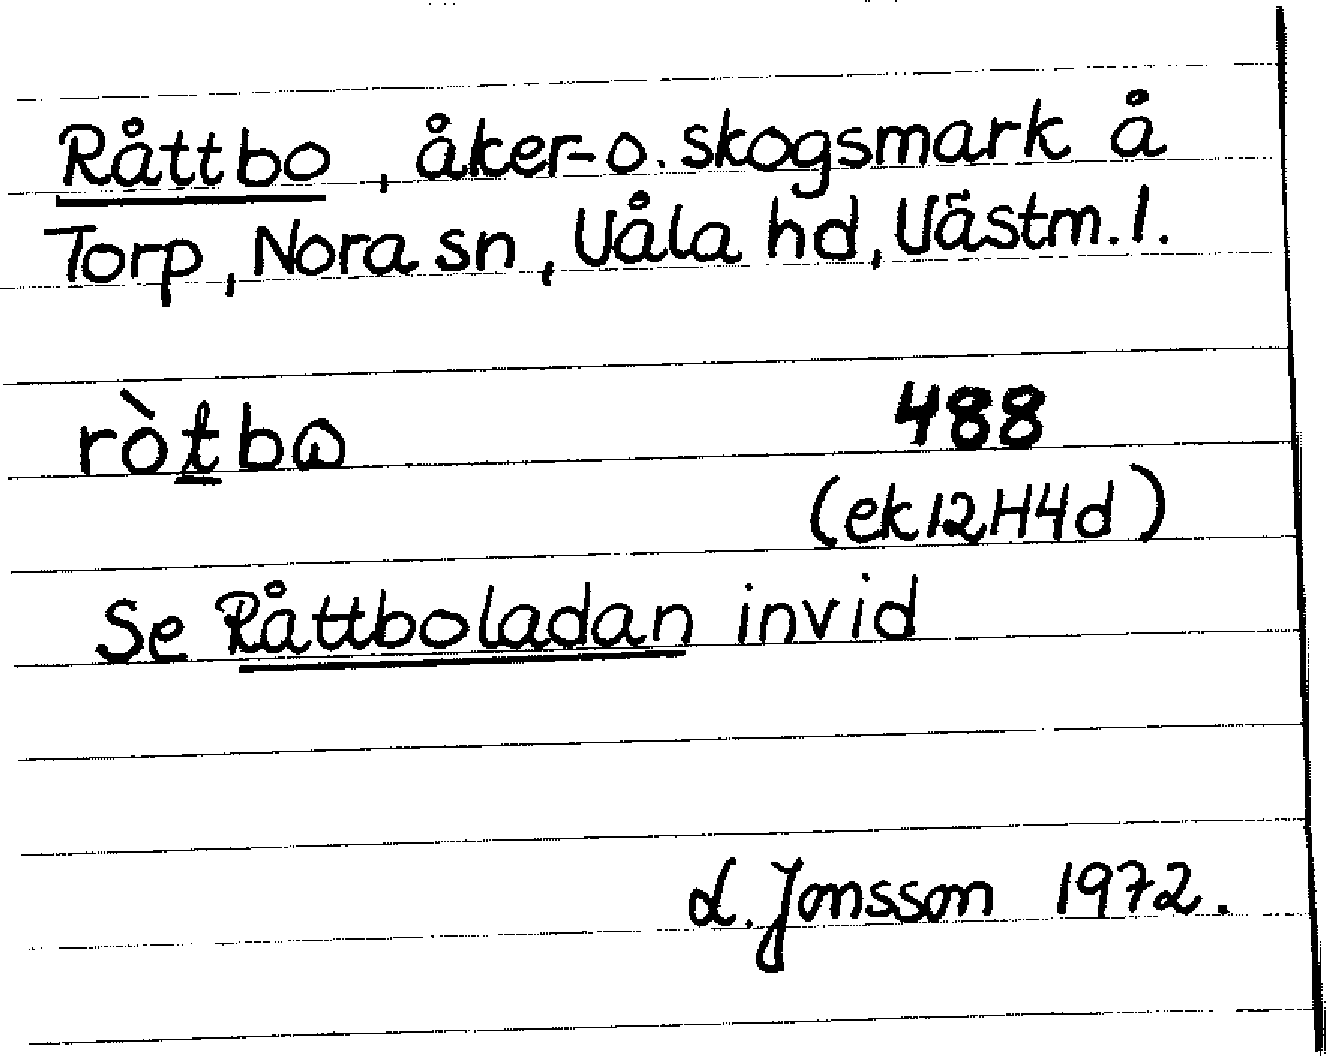 Råttbo, åker- o. skogsmark å
Torp, Nora sn, Våla hd, Västm. l.
ròtbɷ
488
(ek 12H4d)
Se Råttboladan invid
L. Jonsson 1972.